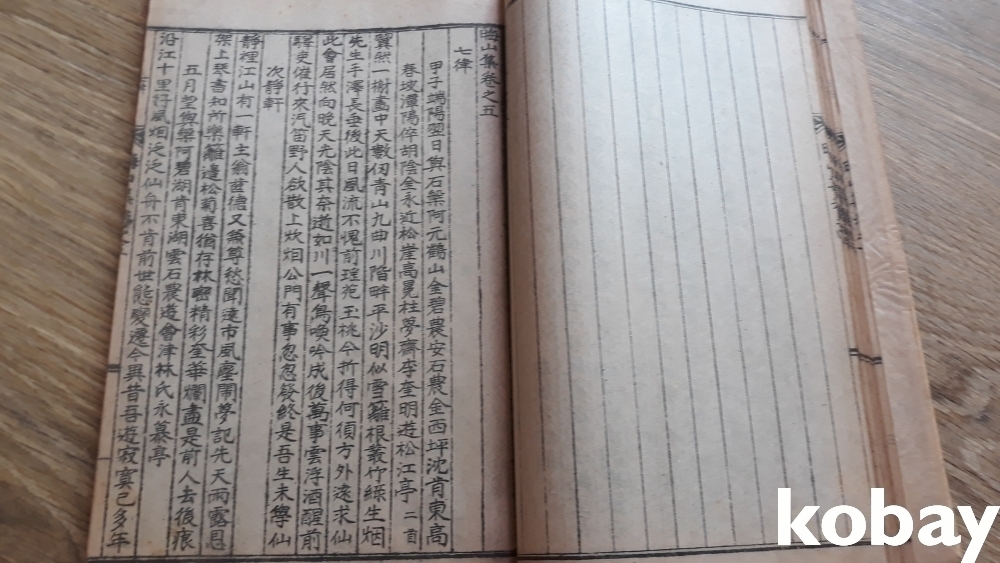 晦山集卷之五
七律
甲子端陽翌日與石槃阿元鶴山金碧農安石農金西坪沈肯東高
春坡潭陽倅胡陰金永近松崖高晃柱夢齋李奎明遊松江亭 二首
翼然一榭畵中天數仞靑山九曲川階畔平沙明似雪籬根叢竹綠生烟
先生手澤長垂後此日風流不愧前瑤花玉桃今折得何須方外遠求仙
此會居然向晚天光陰其奈逝如川一聲鳥喚吟成後萬事雲浮酒醒前
驛吏催行來汽笛野人欲散上炊烟公門有事忽忽發終是吾生未學仙
次靜軒
靜裡江山有一軒主翁齒德又兼尊愁聞遠市風塵鬧夢記先天雨露恩
架上琴書知所樂籬邊松菊喜猶存林密精彩奎華爛盡是前人去後痕
五月望與槃阿碧湖肯東湖雲石農遊會津林氏永慕亭
沿江十里好風烟泛泛仙舟不肯前世態變遷今與昔吾遊寂寞已多年
kobay